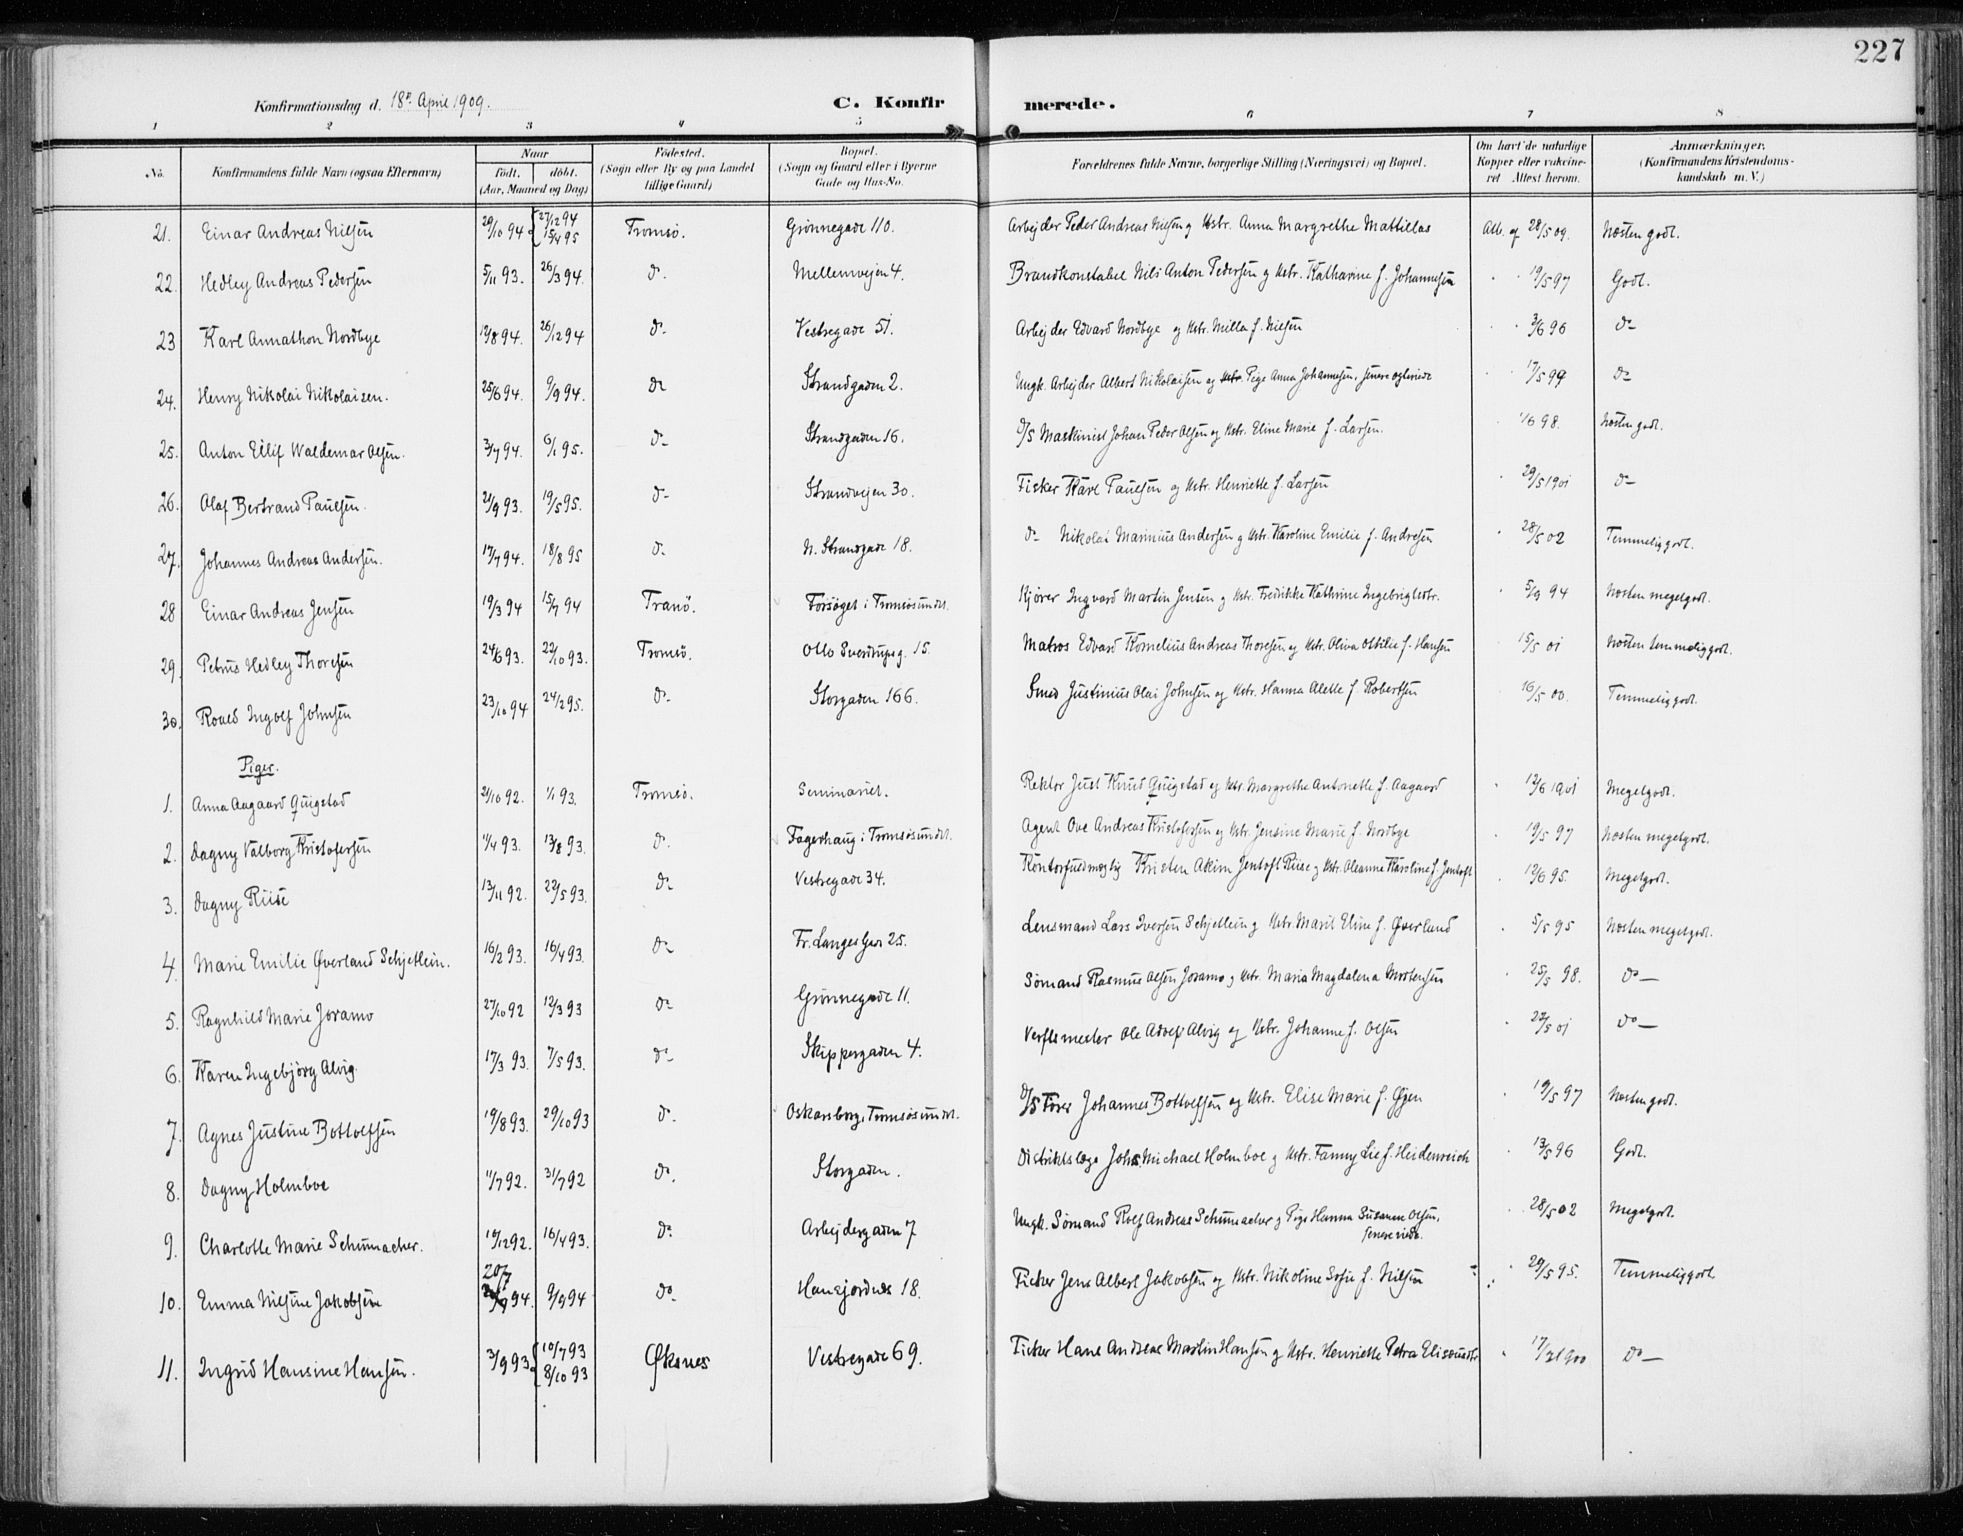 227
Konfirmationsdag d. 18de April 1909. C. Konfir merede.
1 2 3 4 5 6 7 8
No. Konfirmandens fulde Navn (ogsaa Efternavn) Naar født, døbt. (Aar, Maaned og Dag) Fødested. (Sogn eller By og paa Landet tillige Gaard) Bopæl. (Sogn og Gaard eller i Byerne Gade og Hus-No. Forældrenes fulde Navne, borgerlige Stilling (Næringsvei) og Bopæl. Om havt de naturlige Kopper eller vakcineret Attest herom. Anmærkninger. (Konfirmandens Kristendomskundskab m. V.)
21. Einar Andreas Nilsen 29/10 94 27/12 94 15/4 95 Tromsö. Grønnegade 110. Arbejder Peder Andreas Nilsen og Hstr. Anna Margrethe Mattillas Att. af 28/5 09. Næsten godt.
22. Hedley Andreas Pedersen 5/11 93. 26/3 94. do. Mellemvejen 4. Brandkonstabel Nils Anton Pedersen og Hstr. Katharine f. Johannesen " " 19/5 97 Godt.
23 Karl Annathon Nordbye 12/8 94. 26/12 94 do. Vestregade 51. Arbejder Edvard Nordbye og Hstr. Milla f. Nilsen " " 3/6 96 do
24. Henry Nikolai Nikolaisen. 25/6 94. 9/9 94. do Strandgaden 2. Ungk. Arbejder Albert Nikolaisen og Hstr. Pige Anna Johannesen, senere ægteviede " " 17/5 99 do
25. Anton Eilif Waldemar Olsen. 3/7 94. 6/1 95. do Strandgaden 16. D/S Maskinist Johan Peder Olsen og Hstr. Eline Marie f. Larsen. " 1/6 98. Næsten godt.
26. Olaf Bertrand Paulsen. 21/9 93. 19/5 95. do Strandvejen 30. Fisker Karl Paulsen og Hstr. Henriette f. Larsen " 29/5 1901 do
27. Johannes Andreas Andersen. 17/7 94. 18/8 95 do N. Strandgade 18. do Nikolai Marinius Andersen og Hstr. Karoline Emilie f. Andresen " 28/5 02 Temmelig godt.
28 Einar Andreas Jensen 19/3 94 15/7 94 Tranö. Forsøget i Tromsösundet. Kjører Ingvard Martin Jensen og Hstr. Fredrikke Kathrine Ingebrigtsdtr. " 5/9 94 Næsten megetgodt.
29. Petrus Hedley Thoresen 24/6 93. 22/10 93. Tromsö. Otto Sverdrupsg. 15. Matros Edvard Kornelius Andreas Thoresen og Hstr. Oliva Ottilie f. Hansen " 15/5 01 Næsten temmeliggodt.
30. Roald Ingolf Johnsen 23/10 94 24/2 95. do Storgaden 166. Smed Justinius Olai Johnsen og Hstr. Hanna Alette f. Robertsen 16/5 00. Temmeliggodt.
Piger.
1. Anna Aagaard Quigstad 21/10 92. 1/1 93. Tromsö. Seminariet. Rektor Just Knud Quigstad og Hstr. Margrethe Antonette f. Aagaard " 12/6 1901 Megetgodt.
2. Dagny Valborg Kristofersen 11/4 93. 13/8 93. do. Fagerhaug i Tromsösundet. Agent Ove Andreas Kristofersen og Hstr. Jensine Marie f. Nordbye " 19/5 97 Næsten megetgodt.
3. Dagny Riise 13/11 92. 22/5 93. do Vestregade 34. Kontorfuldmægtig Kristen Akim Jentoft Riise og Hstr. Oleanne Karoline f. Jentoft " 12/6 95. Megetgodt.
4. Marie Emilie Øverland Schjetlein. 16/2 93. 16/4 93. do Fr. Langes Gade 25. Lensmand Lars Iversen Schjetlein og Hstr. Marit Eline f. Øverland " 5/5 95 Næsten megetgodt.
5. Ragnhild Marie Joramo 27/10 92 12/3 93 do Grönnegade 11. Sømand Rasmus Olsen Joramo og Hstr. Maria Magdalena Mortensen " 25/5 98. do
6. Karen Ingebjörg Alvig. 17/3 93. 7/5 93. do Skippergaden 4. Verftsmester Ole Adolf Alvig og Hstr. Johanne f. Olsen " 22/5 01 do
7. Agnes Justine Bottolfsen 19/8 93. 29/10 93 do. Oskarsborg, Tromsösundet. D/S Fører Johannes Bottolfsen og Hstr. Elise Marie f. Øyen " 19/5 97 Næsten godt.
8. Dagny Holmboe 11/7 92. 31/7 92 do. Storgaden. Distriktslæge Johs Michael Holmboe og Hstr. Fanny Lie f. Heidenreich " 13/5 96 Godt.
9. Charlotte Marie Schumacher. 19/12 92. 16/4 93. do Arbejdergaden 7 Ungk. Sømand Rolf Andreas Schumacher og Pige Hanna Susanne Olsen, senere viede. " 28/5 02 Megetgodt.
10. Emma Nilsine Jakobsen 20/7 94. 9/9 94 do Hansjordnes 18. Fisker Jens Albert Jakobsen og Hstr. Nikoline Sofie f. Nilsen " 29/5 95. Temmeliggodt.
11. Ingrid Hansine Hansen. 3/9 93 10/7 93 8/10 93 Øksnes Vestregade 69. Fisker Hans Andreas Martin Hansen og Hstr. Henriette Petra Eliseusdtr. " do